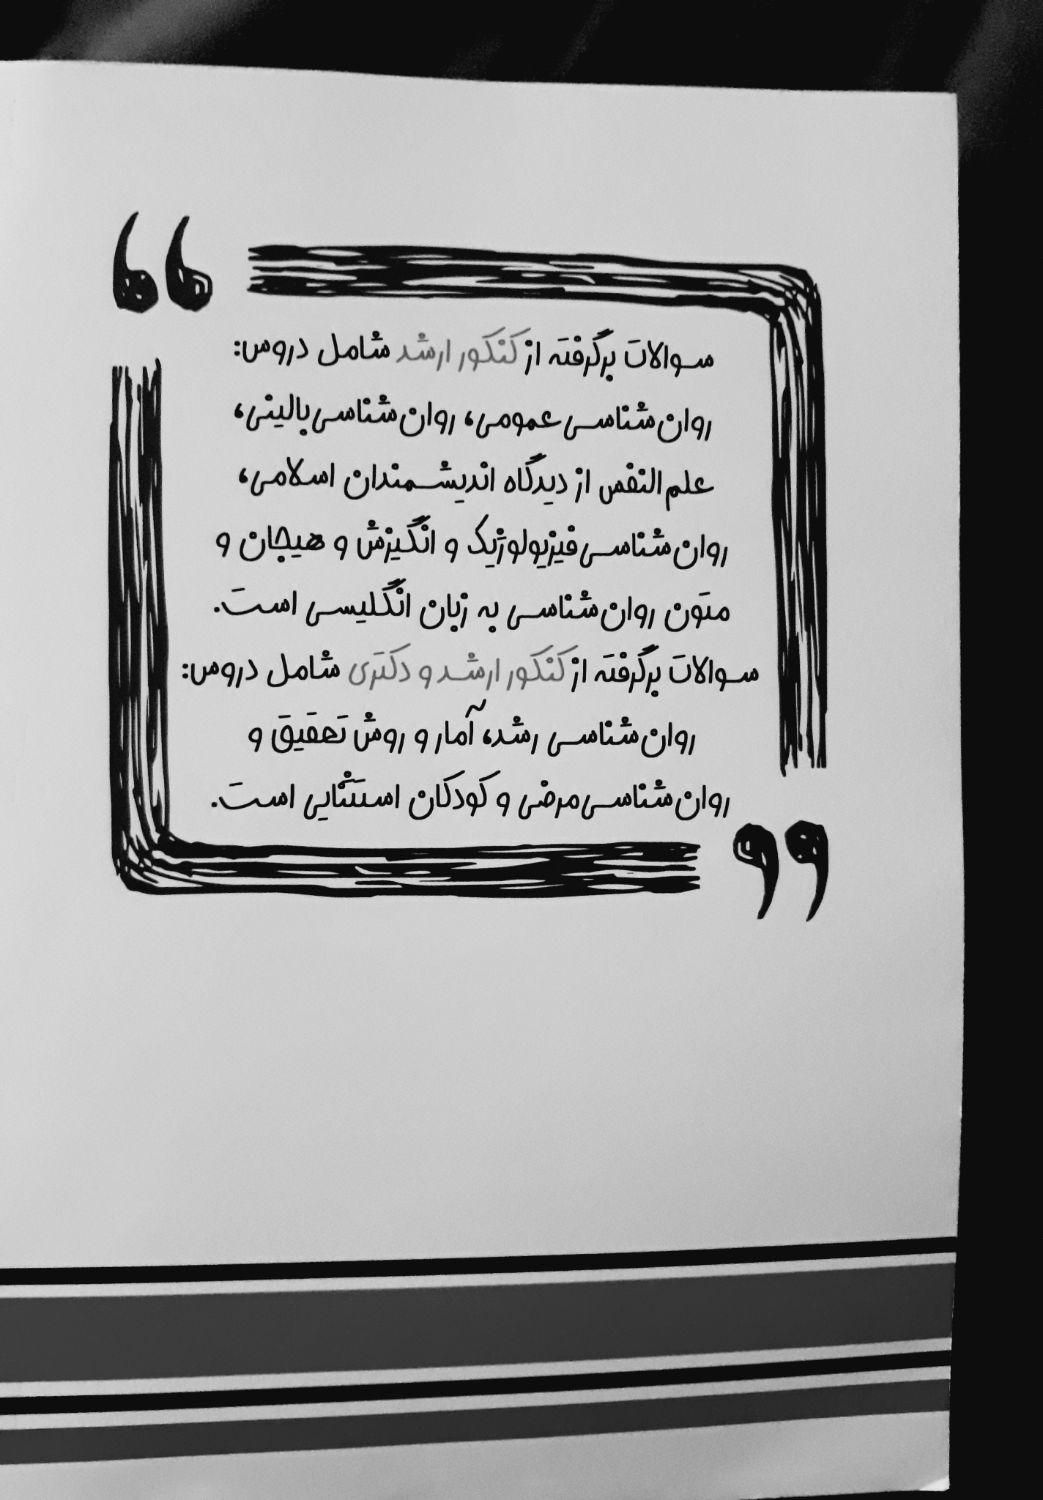 سوالات برگرفته از کنکور ارشد شامل دروس:
روان‌شناسی عمومی، روان‌شناسی بالینی،
علم النفس از دیدگاه اندیشمندان اسلامی،
روان‌شناسی فیزیولوژیک و انگیزش و هیجان و
متون روان‌شناسی به زبان انگلیسی است.
سوالات برگرفته از کنکور ارشد و دکتری شامل دروس:
روان‌شناسی رشد، آمار و روش تحقیق و
روان‌شناسی مرضی و کودکان استثنایی است.